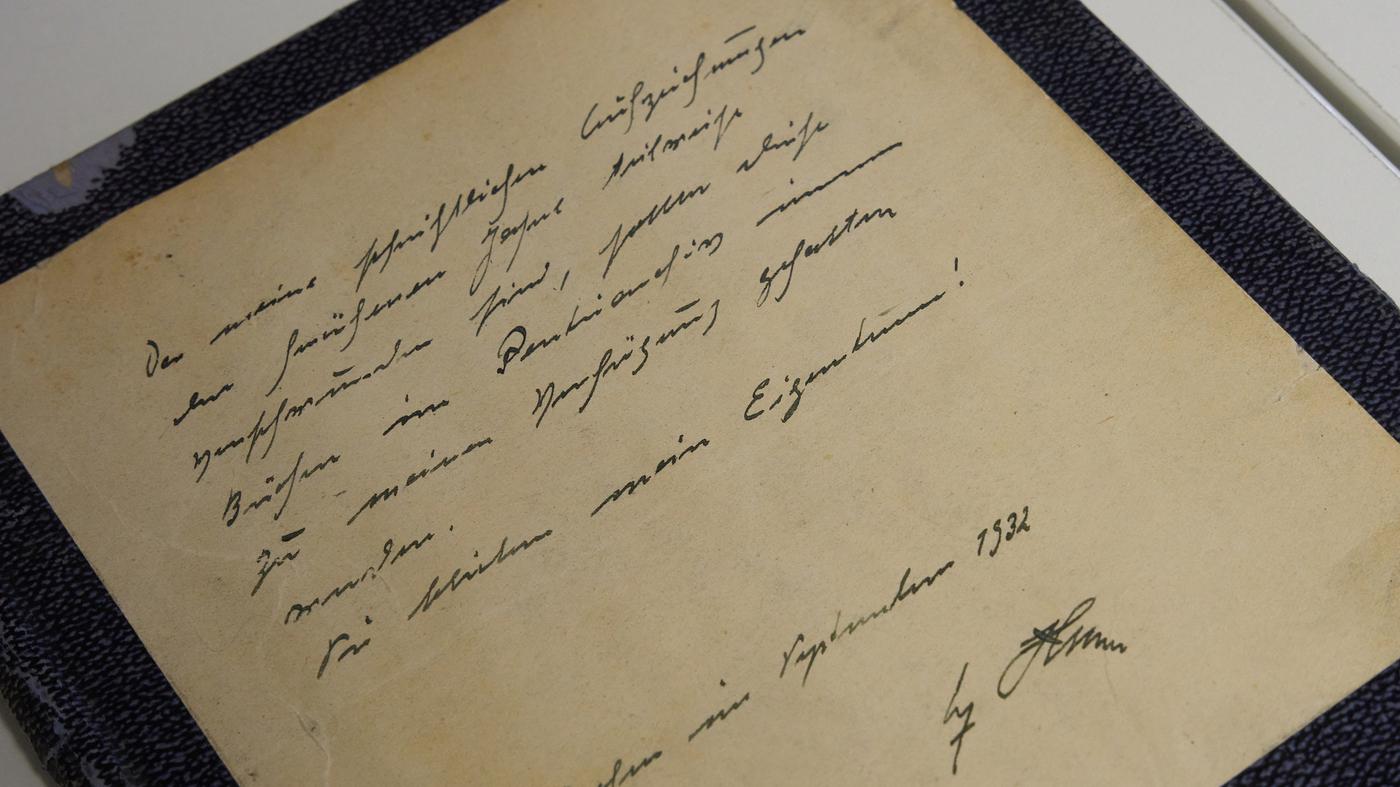 Da meine schriftlichen Aufzeichnungen
der früheren Jahre teilweise
verschwunden sind, sollen diese
Bücher im Panteiarchiv immer
zu meiner Verfügung gehalten
werden.
Sie bleiben mein Eigentum!
im September 1932